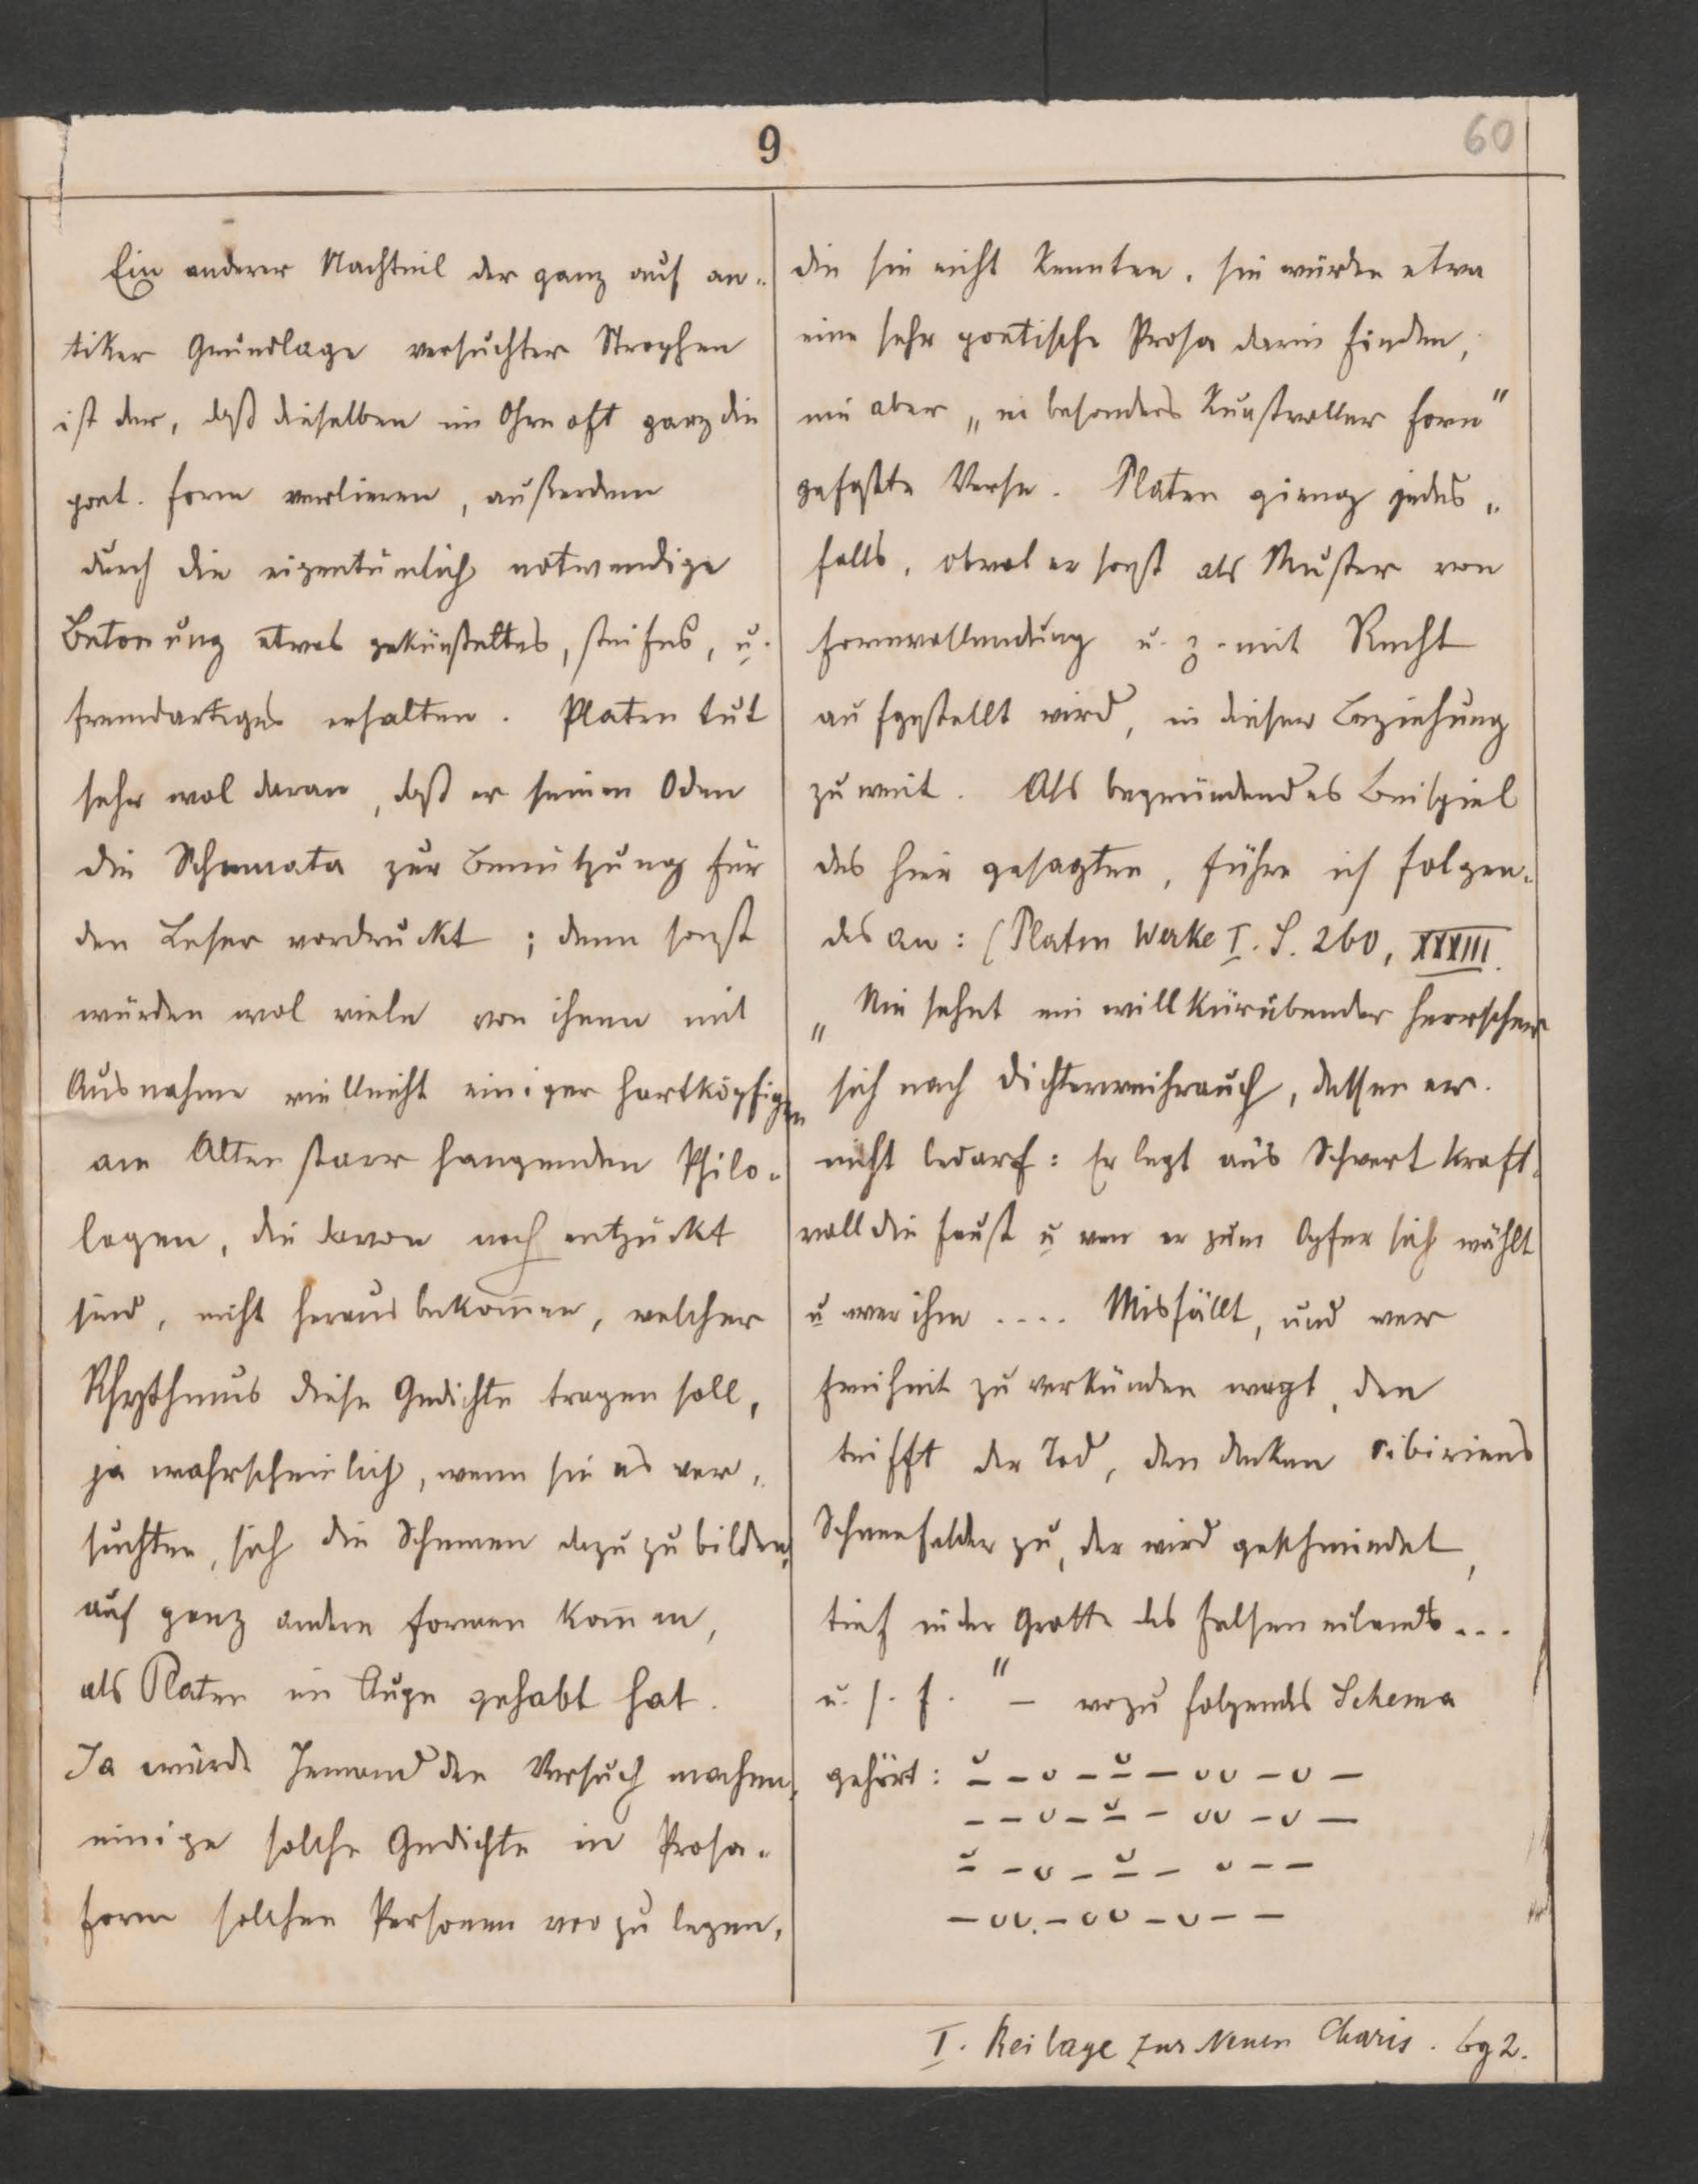 9
60
Ein anderer Nachteil der ganz auf an-
tiker Grundlage versuchter Strophen
ist der, daß dieselben im Ohre oft ganz die
poet. Form verlieren, außerdem
durch die eigentümlich notwendige
Betonung etwas gekünsteltes, steifes, u.
fremdartiges erhalten. Platen tut
sehr wol daran, daß er seinen Oden
die Schemata zur Benützung für
den Leser vordruckt; denn sonst
würden wol viele von ihnen mit
Ausnahme vielleicht einiger hartköpfigen
am Alten starr hangenden Philo-
logen, die davon noch entzückt
sind, nicht herausbekom̄en, welcher
Rhythmus diese Gedichte tragen soll,
ja wahrscheinlich, wenn sie es ver-
suchten, sich die Schemen dazu zu bilden,
auf ganz andere Formen kom̄en,
als Platen im Auge gehabt hat.
Ja würde Jemand den Versuch machen,
einige solche Gedichte in Prosa-
form solchen Personen vorzulegen,
die sie nicht kennten, sie würden etwa
eine sehr poetische Prosa darin finden,
nie aber „in besonders kunstvoller Form"
gefaßte Verse. Platen gieng jedes-
falls, obwol er sonst als Muster von
Formvollendung u. z. mit Recht
aufgestellt wird, in dieser Beziehung
zu weit. Als begründendes Beispiel
des hier gesagten, führe ich folgen-
des an: (Platen Werke I. S. 260, XXXIII.
„Nie sehnt ein willkürübender Herrscher
sich nach Dichterweihrauch, dessen er
nicht bedarf: Er legt ans Schwert kraft-
voll die Faust u wen er zum Opfer sich wählt
u wer ihm .... Misfällt, und wer
Freiheit zu verkünden wagt, den
trifft der Tod, den decken Sibiriens
Schneefelder zu, der wird geschmiedet,
tief in der Grotte des Felseneilands ...
u. s. f." — wozu folgendes Schema
gehört: ⏓ – ᴗ – ⏓ – ᴗᴗ – ᴗ –
– – ᴗ – ⏓ – ᴗᴗ – ᴗ –
⏓ – ᴗ – ⏓ – ᴗ – –
– ᴗᴗ – ᴗᴗ – ᴗ – –
I. Beilage zur Neuen Charis. bg 2.